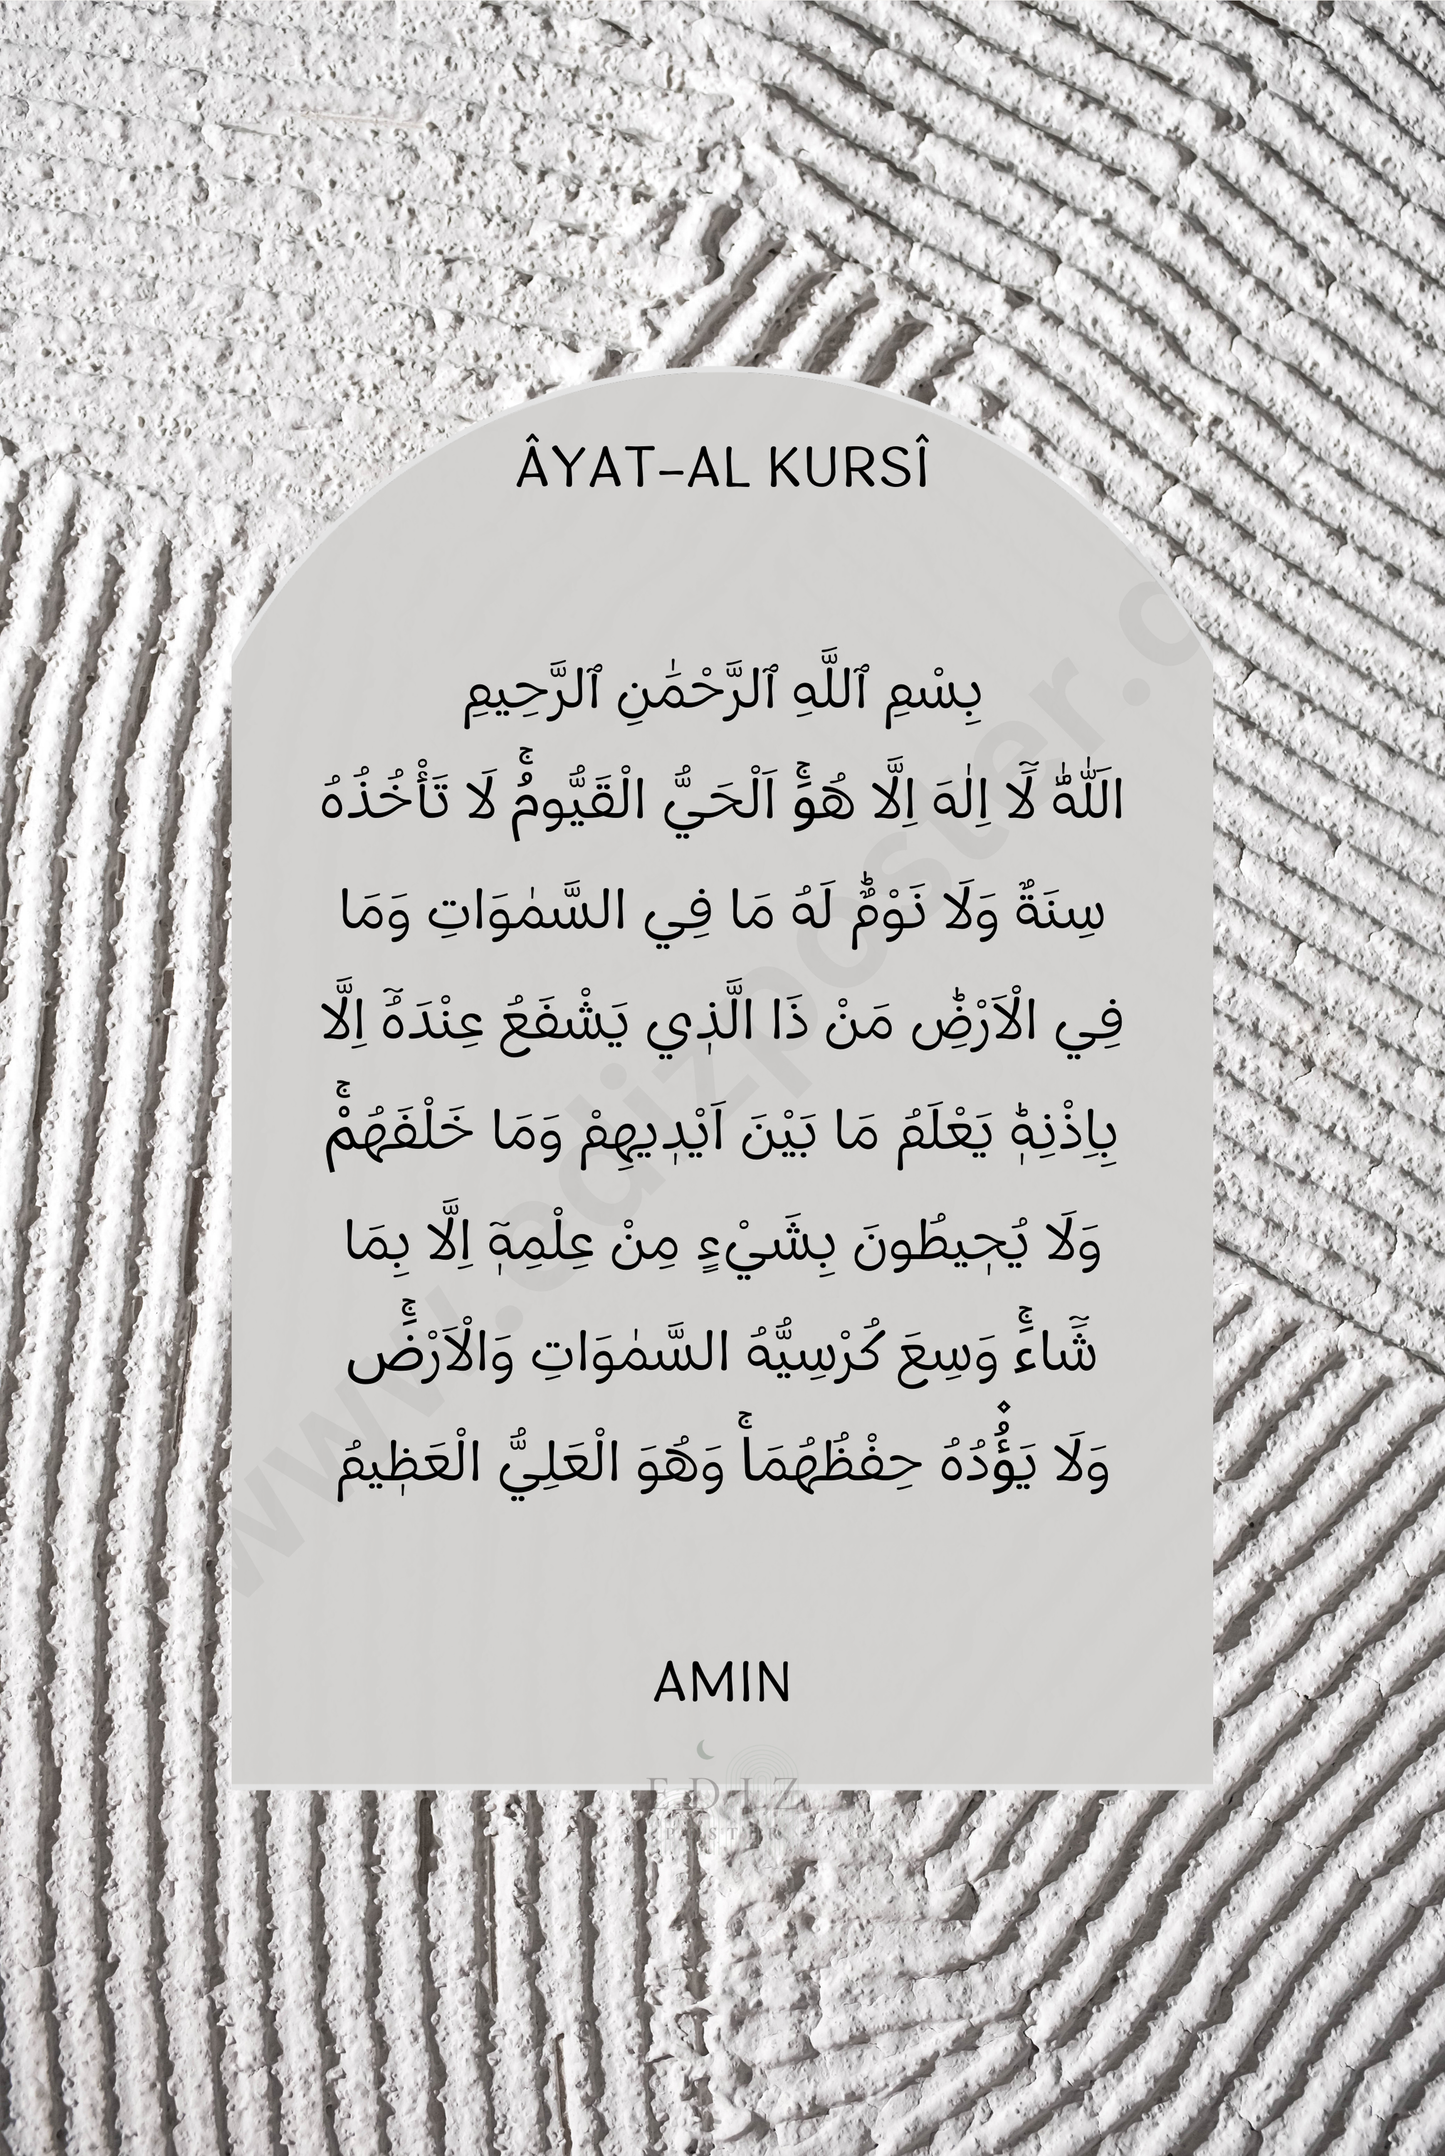 ÂYAT-AL KURSÎ
بِسْمِ ٱللَّهِ ٱلرَّحْمَٰنِ ٱلرَّحِيمِ
اَللّٰهُ لَٓا اِلٰهَ اِلَّا هُوَۚ اَلْحَيُّ الْقَيُّومُۚ لَا تَأْخُذُهُ
سِنَةٌ وَلَا نَوْمٌؕ لَهُ مَا فِي السَّمٰوَاتِ وَمَا
فِي الْاَرْضِؕ مَنْ ذَا الَّذٖي يَشْفَعُ عِنْدَهُٓ اِلَّا
بِاِذْنِهٖؕ يَعْلَمُ مَا بَيْنَ اَيْدٖيهِمْ وَمَا خَلْفَهُمْۚ
وَلَا يُحٖيطُونَ بِشَيْءٍ مِنْ عِلْمِهٖٓ اِلَّا بِمَا
شَٓاءَۚ وَسِعَ كُرْسِيُّهُ السَّمٰوَاتِ وَالْاَرْضَۚ
وَلَا يَؤُ۫دُهُ حِفْظُهُمَاۚ وَهُوَ الْعَلِيُّ الْعَظٖيمُ
AMIN
EDIZ
POSTER
www.edizposter.c